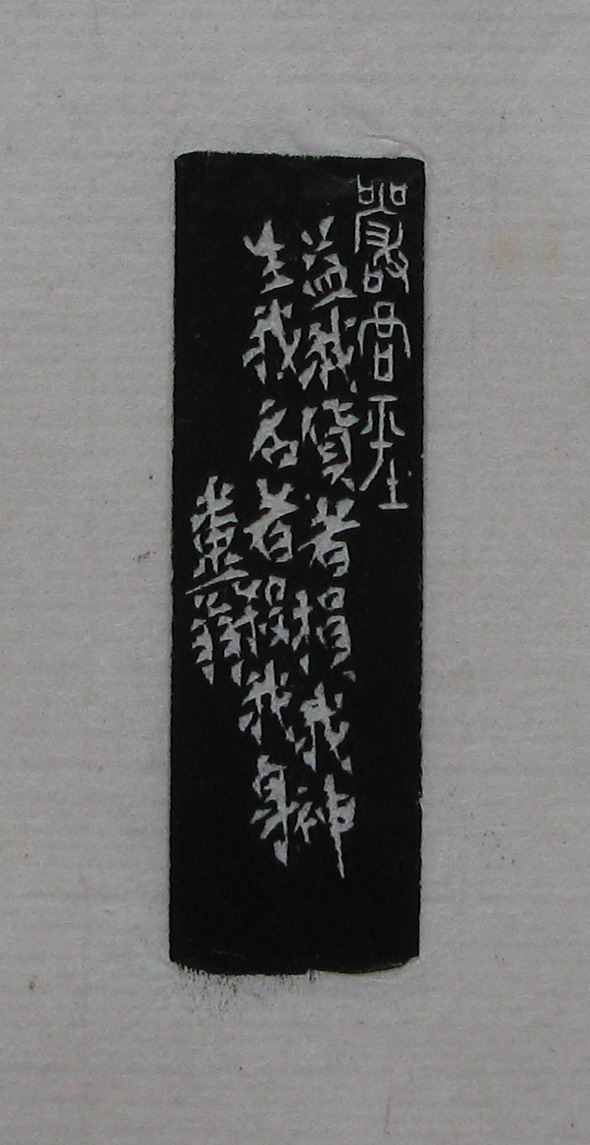 嚴君平
益我貨者損我神
生我名者殺我身
翁